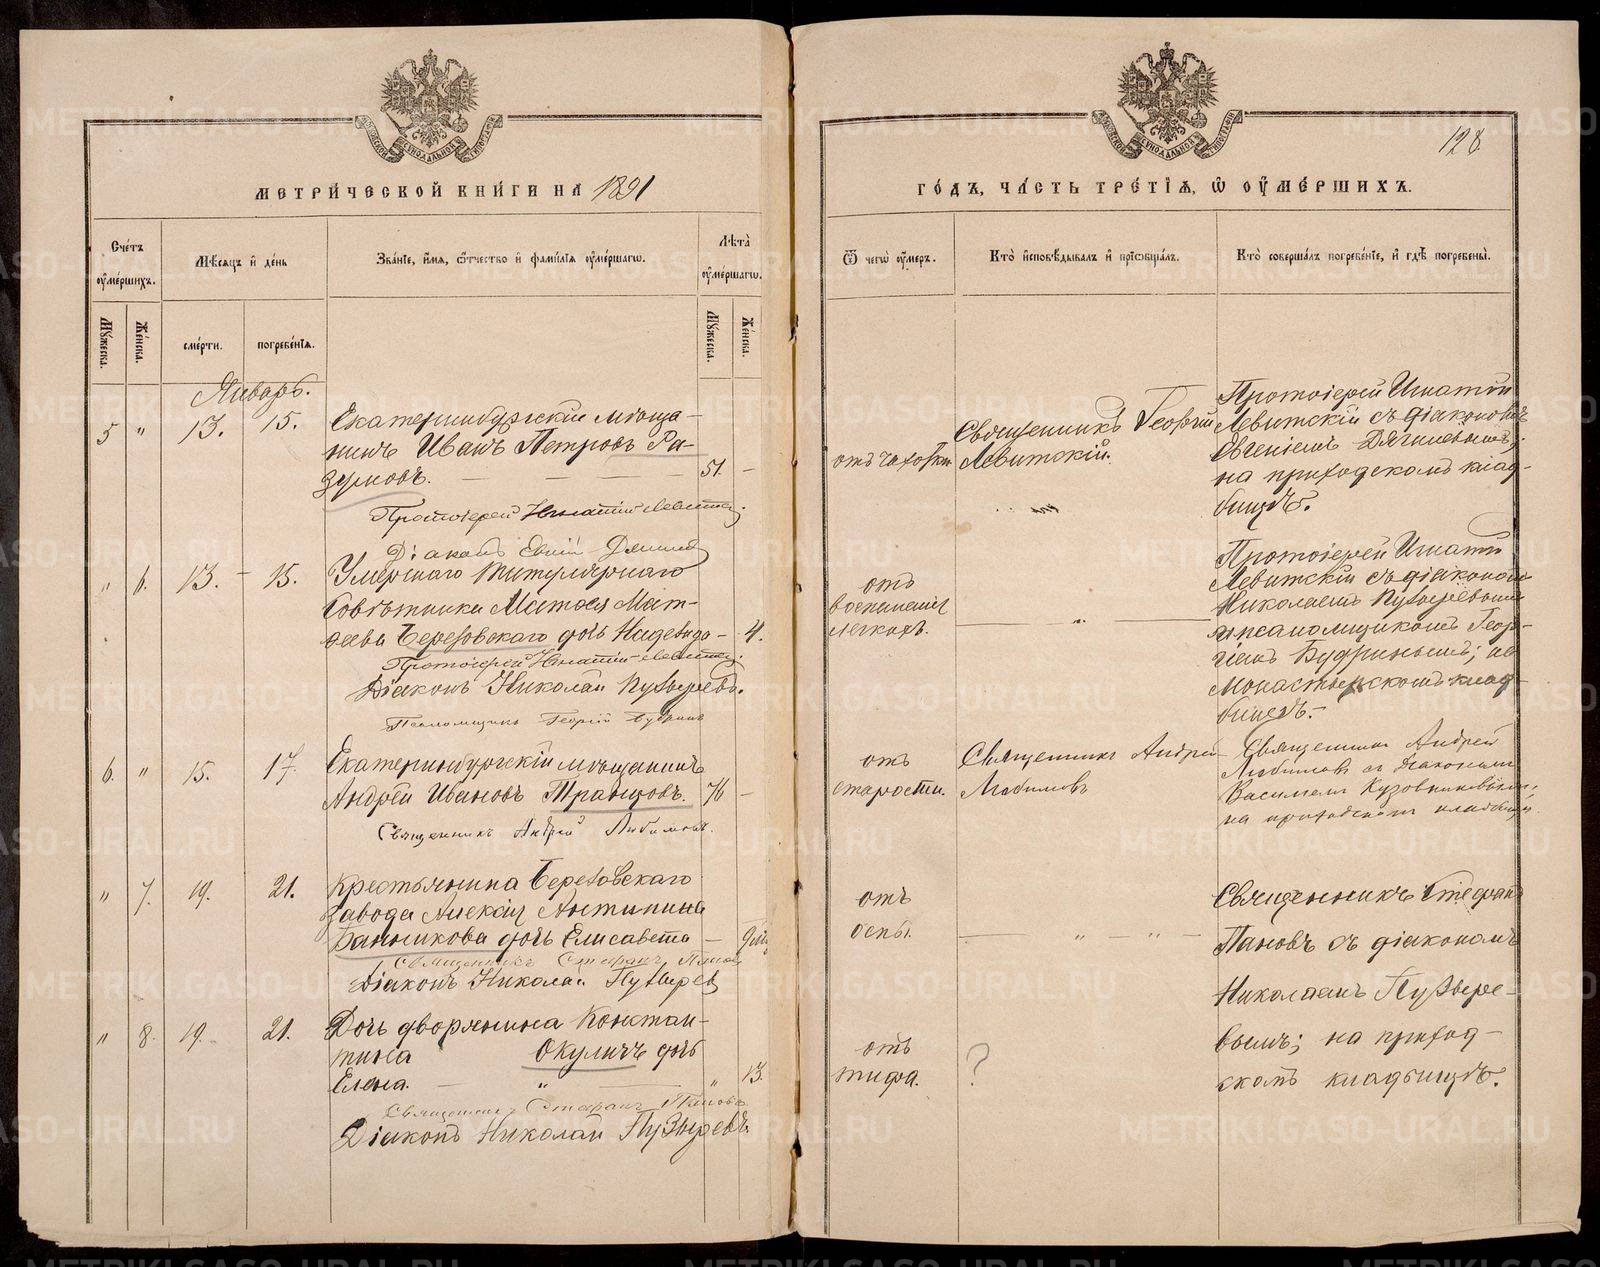 МЕТРИЧЕСКОЙ КНИГИ НА 1891
Счетъ оумершихъ.
Мѣсяцъ и день
Званіе, имя, отчество и фамилія оумершагω.
Лѣта оумершагω.
Мужеска.
Женска.
смерти.
погребенія.
Мужеска.
Женска.
Январь.
5 " 13. 15. Екатеринбургскій мѣща-
нинъ Иванъ Петровъ Ра-
зумовъ. 51. -
Протоіерей Игнатій Левитскій.
Діаконъ
" 6. 13. - 15. Умершаго Титулярнаго
Совѣтника Матвея Мат-
веева Березовскаго дочь Надежда - 4.
Протоіерей Игнатій Левитскій.
Діаконъ Николай Пузыревъ.
Псаломщикъ Георгій Будринъ
6. " 15. 17. Екатеринбургскій мѣщанинъ
Андрей Ивановъ Транцовъ. 76 -
Священникъ Андрей Любимовъ.
" 7. 19. 21. Крестьянина Березовскаго
завода Алексія Антипина
Банникова дочь Елисавета -
Священникъ Стефанъ Пановъ
Діаконъ Николай Пузырев
" 8. 19. 21. Дочь дворянина Констан-
тина Окуличъ дочь
Елена. - " - " 13.
Священникъ Стефанъ Пановъ
Діаконъ Николай Пузыревъ
128
ГОДЪ, ЧАСТЬ ТРЕТІЯ, Ѡ ОУМЕРШИХЪ.
Ѿ чегω оумеръ.
Кто исповѣдывалъ и пріωбщалъ.
Кто совершалъ погребеніе, и гдѣ погребены.
отъ чахотки
Священникъ Георгій
Левитскій.
Протоіерей Игнатій
Левитскій съ діакономъ
Евгеніемъ Дягилевымъ;
на приходскомъ клад-
бищѣ.
отъ
воспаленія
легкихъ.
"
Протоіерей Игнатій
Левитскій съ діакономъ
Николаемъ Пузыревымъ
и псаломщикомъ Геор-
гіемъ Будринымъ; на
Монастырскомъ клад-
бищѣ.
отъ
старости.
Священникъ Андрей
Любимовъ
Священникъ Андрей
Любимовъ съ діакономъ
Василіемъ Кузовниковымъ;
на приходскомъ кладбищѣ
отъ
оспы.
" - "
отъ
тифа.
?
Священникъ Стефанъ
Пановъ съ діакономъ
Николаемъ Пузыре-
вымъ; на приход-
скомъ кладбищѣ.
METRIKI.GASO-URAL.RU